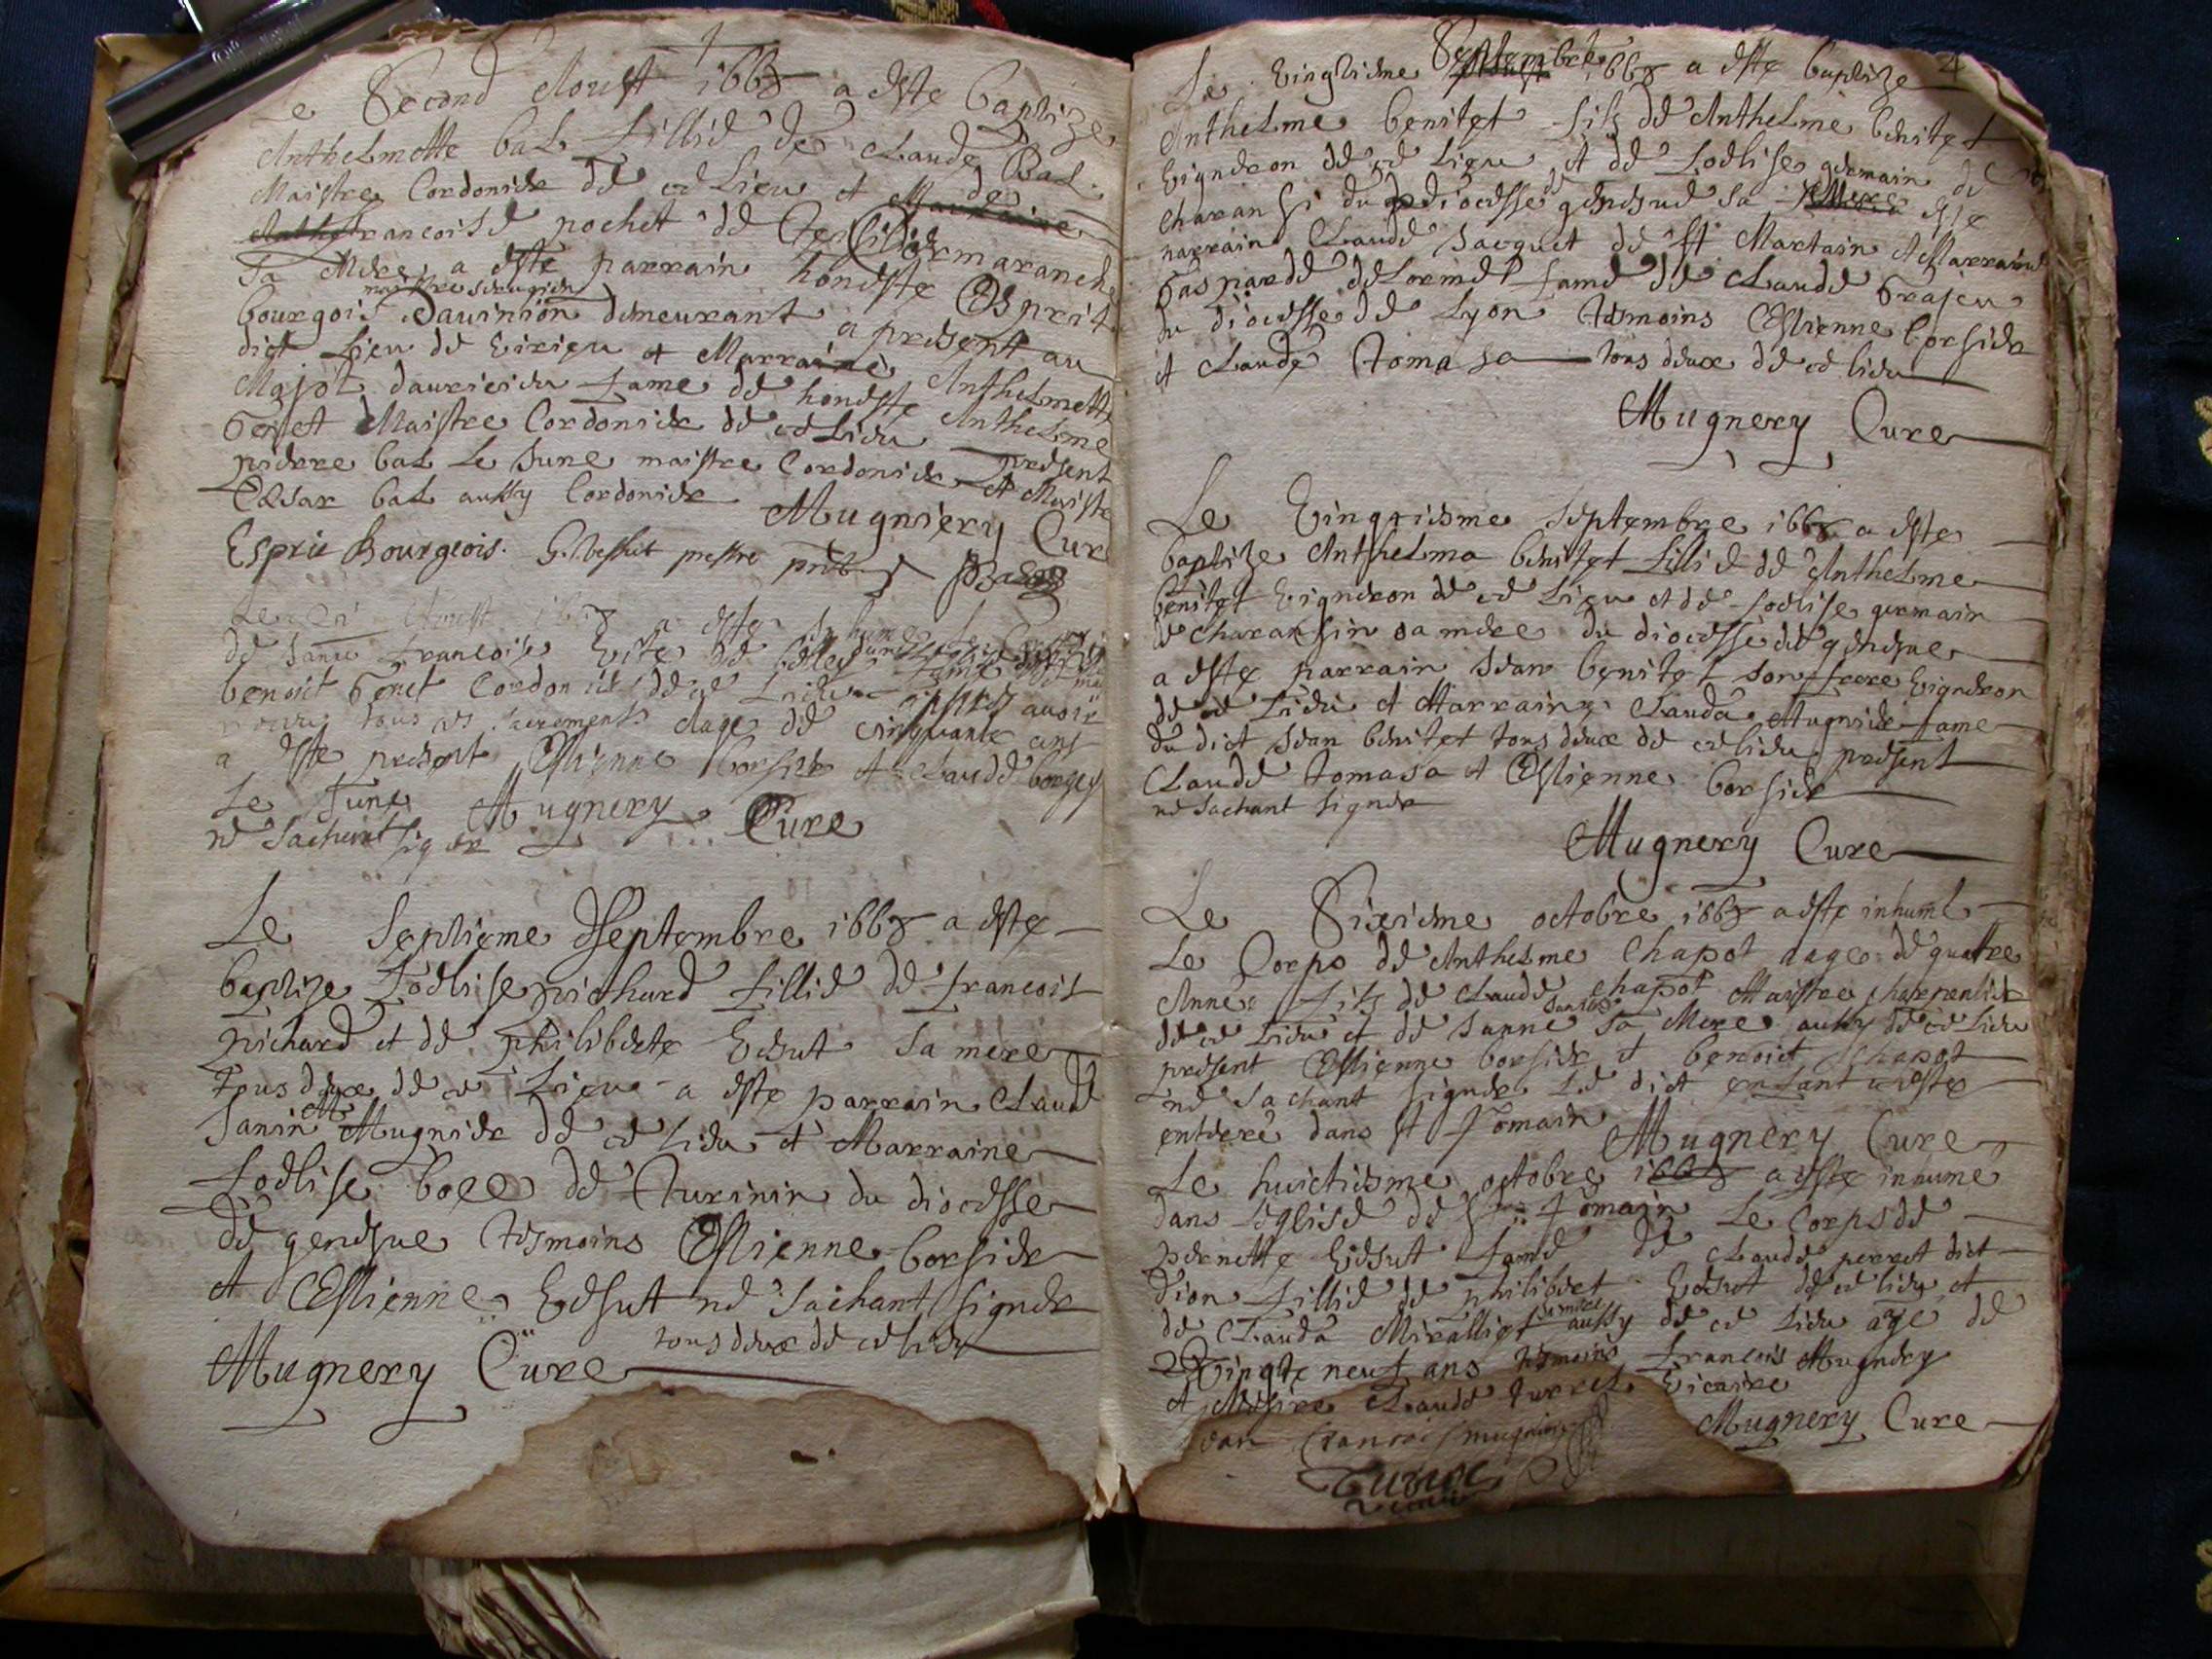 Le Second Aoust 1668 a este baptize
Anthelmette bal fillie de Claude Bal
Maistre Cordonier de ce Lieu et de
francoise pochet de
sa Mere a este parrain honeste Esprit
bourgois Davinion demeurant a present au
dict Lieu de Virieu et Marraine Anthelmette
Majot dauricieu fame de honeste Anthelme
Genet Maistre Cordonier de ce Lieu present
pierre bal Le June maistre Cordonier et Maistre
Cesar bal aussy Cordonier Mugniery Cure
Esprit Bourgeois.
Le Aoust 1668 a este
de francoise de
benoict Genet Cordonier de ce Lieu apres avoir
tous ses sacrements dage de cinquante ans
a este present Estienne borsier et Claude borgey
Le June Mugnery Cure
ne Sachant signer
Le Septieme dSeptembre 1668 a este
baptize Loelise pichard fillie de francois
pichard et de philiberte Vesut sa mere
tous deux de ce Lieu a este parrain Claude
Janin Mugnier de ce Lieu et Marraine
Loelise boee de Turinin du diocesse
de geneyve tesmoins Estienne borsier
et Estienne Vesut ne Sachant signer
tous deux de ce lieu
Mugnery Cure
4
Le Vingtiesme Septembre 1668 a este baptize
Anthelme benitet fils de Anthelme benitet
Vigneron de ce Lieu et de Loelise germain de
charansi du diocesse de geneyve sa Mere este
parrain Claude Jacquet de St Martain et Marraine
Gasparde delorme fame de Claude
du diocesse de Lyon tesmoins Estienne borsier
et Claude Tomasa tous deux de ce lieu
Mugnery Cure
Le Vingtiesme Septembre 1668 a este
baptize Anthelma benitet fillie de Anthelme
benitet Vigneron de ce Lieu et de Loelise germain
de charansin sa mere du diocesse de geneyve
a este parrain Jean benitet son frere Vigneron
de ce Lieu et Marraine Clauda Mugnier fame
du dict Jean benitet tous deux de ce lieu present
Claude Tomasa et Estienne borsier
ne Sachant signer
Mugnery Cure
Le Sixiesme octobre 1668 a este inhume
Le Corps de Anthelme Chapot aage de quattre
Anne fils de Claude chapot Maistre charpentier
de ce Lieu et de Janne sa Mere aussy de ce Lieu
present Estienne borsier et benoict chapot
ne Sachant signer Le dict enfant a este
entere dans St Romain Mugnery Cure
Le huictiesme octobre 1668 a este inhume
dans Leglise de St Romain Le Corps de
pernette Viesut fame de Claude perret dict
Dion fillie de philibert Vesut de ce lieu et
de Clauda Miralliet sa mere aussy de ce Lieu age de
Vingte neuf ans tesmoins francois Mugnery
et Messire Claude Turrel Vicaire
Mugnery Cure